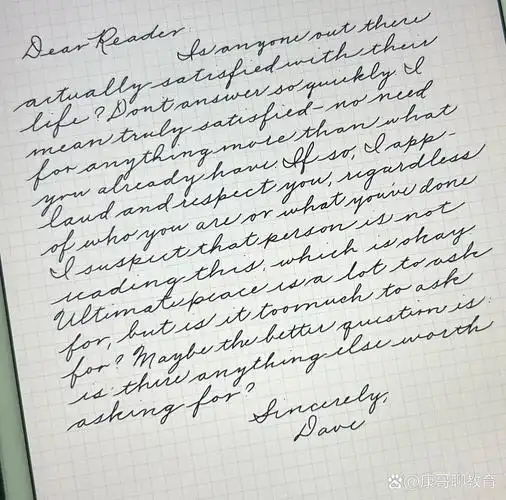 Dear Reader
Is anyone out there
actually satisfied with their
life? Dont answer so quickly. I
mean truly satisfied - no need
for anything more than what
you already have. If so, I app-
laud and respect you, regardless
of who you are or what you've done
I suspect that person is not
reading this, which is okay
Ultimate peace is a lot to ask
for, but is it too much to ask
for? Maybe the better question is:
is there anything else worth
asking for?
Sincerely,
Dave
@康哥聊教育